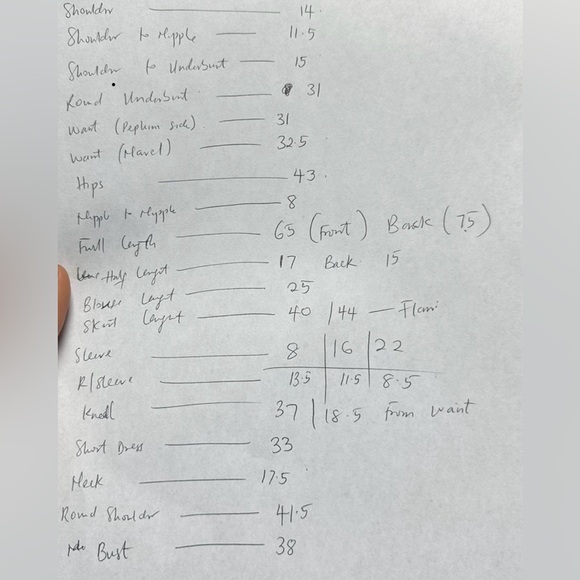 Shoulder — 14
Shoulder to Nipple — 11.5
Shoulder to Underbust — 15
Round Underbust — 31
Waist (Peplum side) — 31
Waist (Navel) — 32.5
Hips — 43
Nipple to Nipple — 8
Full length — 65 (Front) Back (75)
Half lenght — 17 Back 15
Blouse lenght — 25
Skirt lenght — 40 / 44 — Flair
Sleeve — 8 | 16 | 22
R/Sleeve — 13.5 | 11.5 | 8.5
Kneel — 37 | 18.5 From waist
Short Dress — 33
Neck — 17.5
Round Shoulder — 41.5
Bust — 38